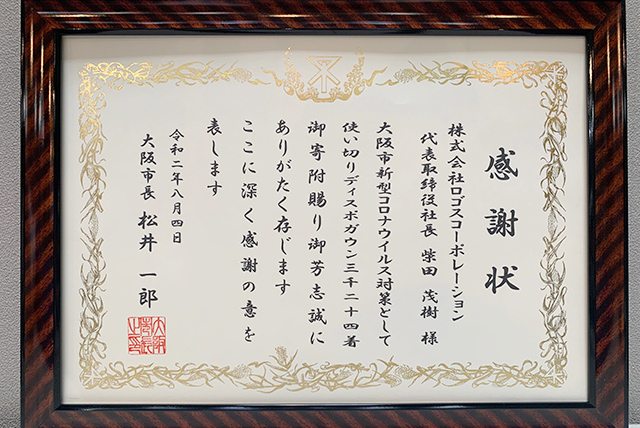 感謝状
株式会社ロゴスコーポレーション
代表取締役社長 柴田 茂樹 様
大阪市新型コロナウイルス対策として
使い切りディスポガウン三千二十四着
御寄附賜り御芳志誠に
ありがたく存じます
ここに深く感謝の意を
表します
令和二年八月四日
大阪市長 松井 一郎